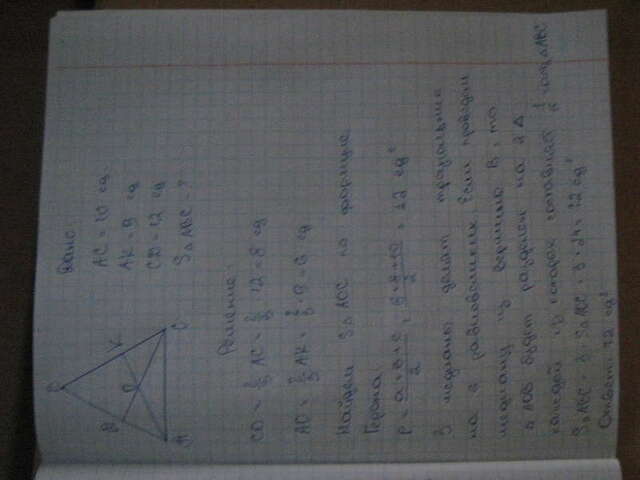 Дано:
AC = 10 ед
AK = 9 ед
CD = 12 ед
S△ABC - ?
B
D
K
O
A
C
Решение:
CO = 2/3 · 12 = 8 ед
AO = 2/3 AK = 2/3 · 9 = 6 ед
Найдем S△AOC по формуле
Герона:
P = a+b+c / 2 = 12 ед
3 медианы делят треугольник
на 6 равновеликих. Если проведем
медиану из вершины B, то
△ AOB будет разделен на 2 △
каждый из которых составляет 1/6 △ABC
S△ABC = 3 · S△AOC = 3 · 24 = 72 ед²
Ответ: 72 ед²